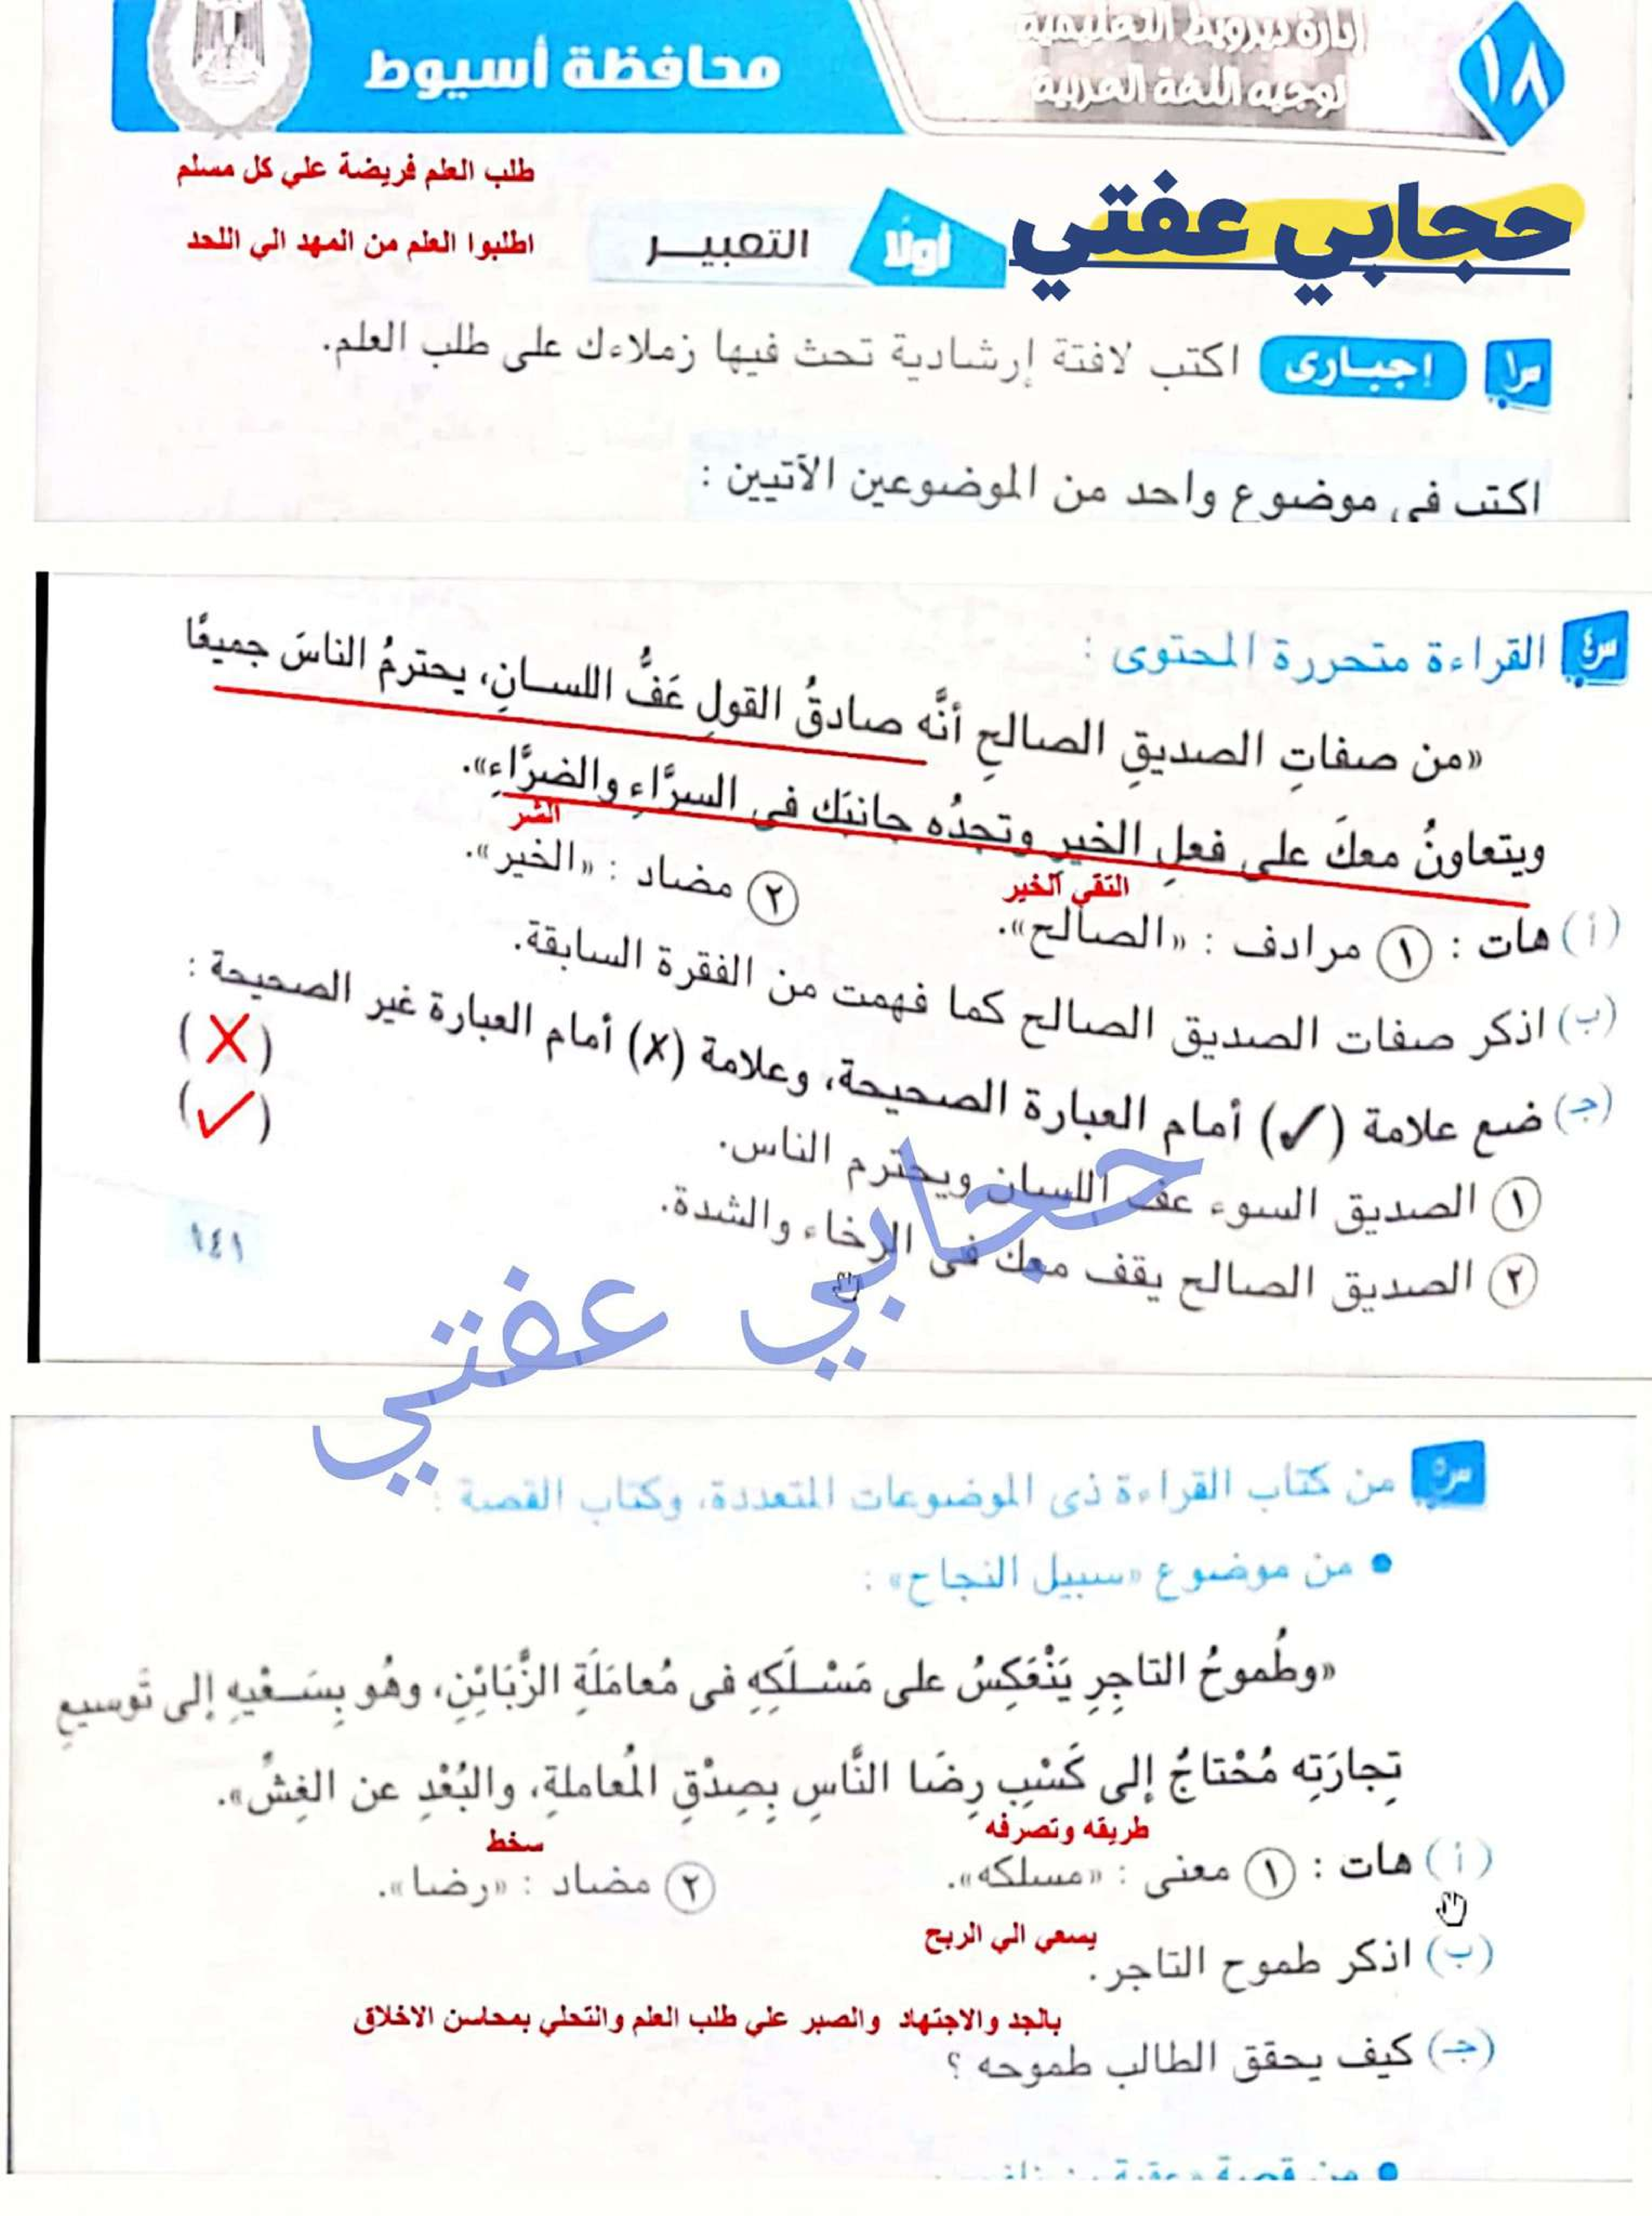 ١٨
إدارة ديروط التعليمية
توجيه اللغة العربية
محافظة أسيوط
حجابي عفتي
طلب العلم فريضة علي كل مسلم
اطلبوا العلم من المهد الي اللحد
أولًا
التعبيـر
س١ إجبـارى اكتب لافتة إرشادية تحث فيها زملاءك على طلب العلم.
اكتب فى موضوع واحد من الموضوعين الآتيين :
س٤ القراءة متحررة المحتوى :
«من صفاتِ الصديقِ الصالحِ أنَّه صادقُ القولِ عَفُّ اللسـانِ، يحترمُ الناسَ جميعًا
ويتعاونُ معكَ على فعلِ الخيرِ وتجدُه جانبَك فى السرَّاءِ والضرَّاءِ».
التقي الخير
الشر
(أ) هات : ١ مرادف : «الصالح». ٢ مضاد : «الخير».
(ب) اذكر صفات الصديق الصالح كما فهمت من الفقرة السابقة.
(جـ) ضع علامة (✓) أمام العبارة الصحيحة، وعلامة (✗) أمام العبارة غير الصحيحة :
١ الصديق السوء عف اللسان ويحترم الناس. (✗)
٢ الصديق الصالح يقف معك فى الرخاء والشدة. (✓)
١٤١
حجابي عفتي
س٥ من كتاب القراءة ذى الموضوعات المتعددة، وكتاب القصة :
• من موضوع «سبيل النجاح» :
«وطُموحُ التاجِرِ يَنْعَكِسُ على مَسْـلَكِهِ فى مُعامَلَةِ الزَّبَائِنِ، وهُو بِسَـعْيِهِ إلى تَوسيعِ
تِجارَتِه مُحْتاجٌ إلى كَسْبِ رِضَا النَّاسِ بِصِدْقِ المُعاملةِ، والبُعْدِ عن الغِشِّ».
طريقه وتصرفه
سخط
(أ) هات : ١ معنى : «مسلكه». ٢ مضاد : «رضا».
يسعي الي الربح
(ب) اذكر طموح التاجر.
بالجد والاجتهاد والصبر علي طلب العلم والتحلي بمحاسن الاخلاق
(جـ) كيف يحقق الطالب طموحه ؟
• من قصة